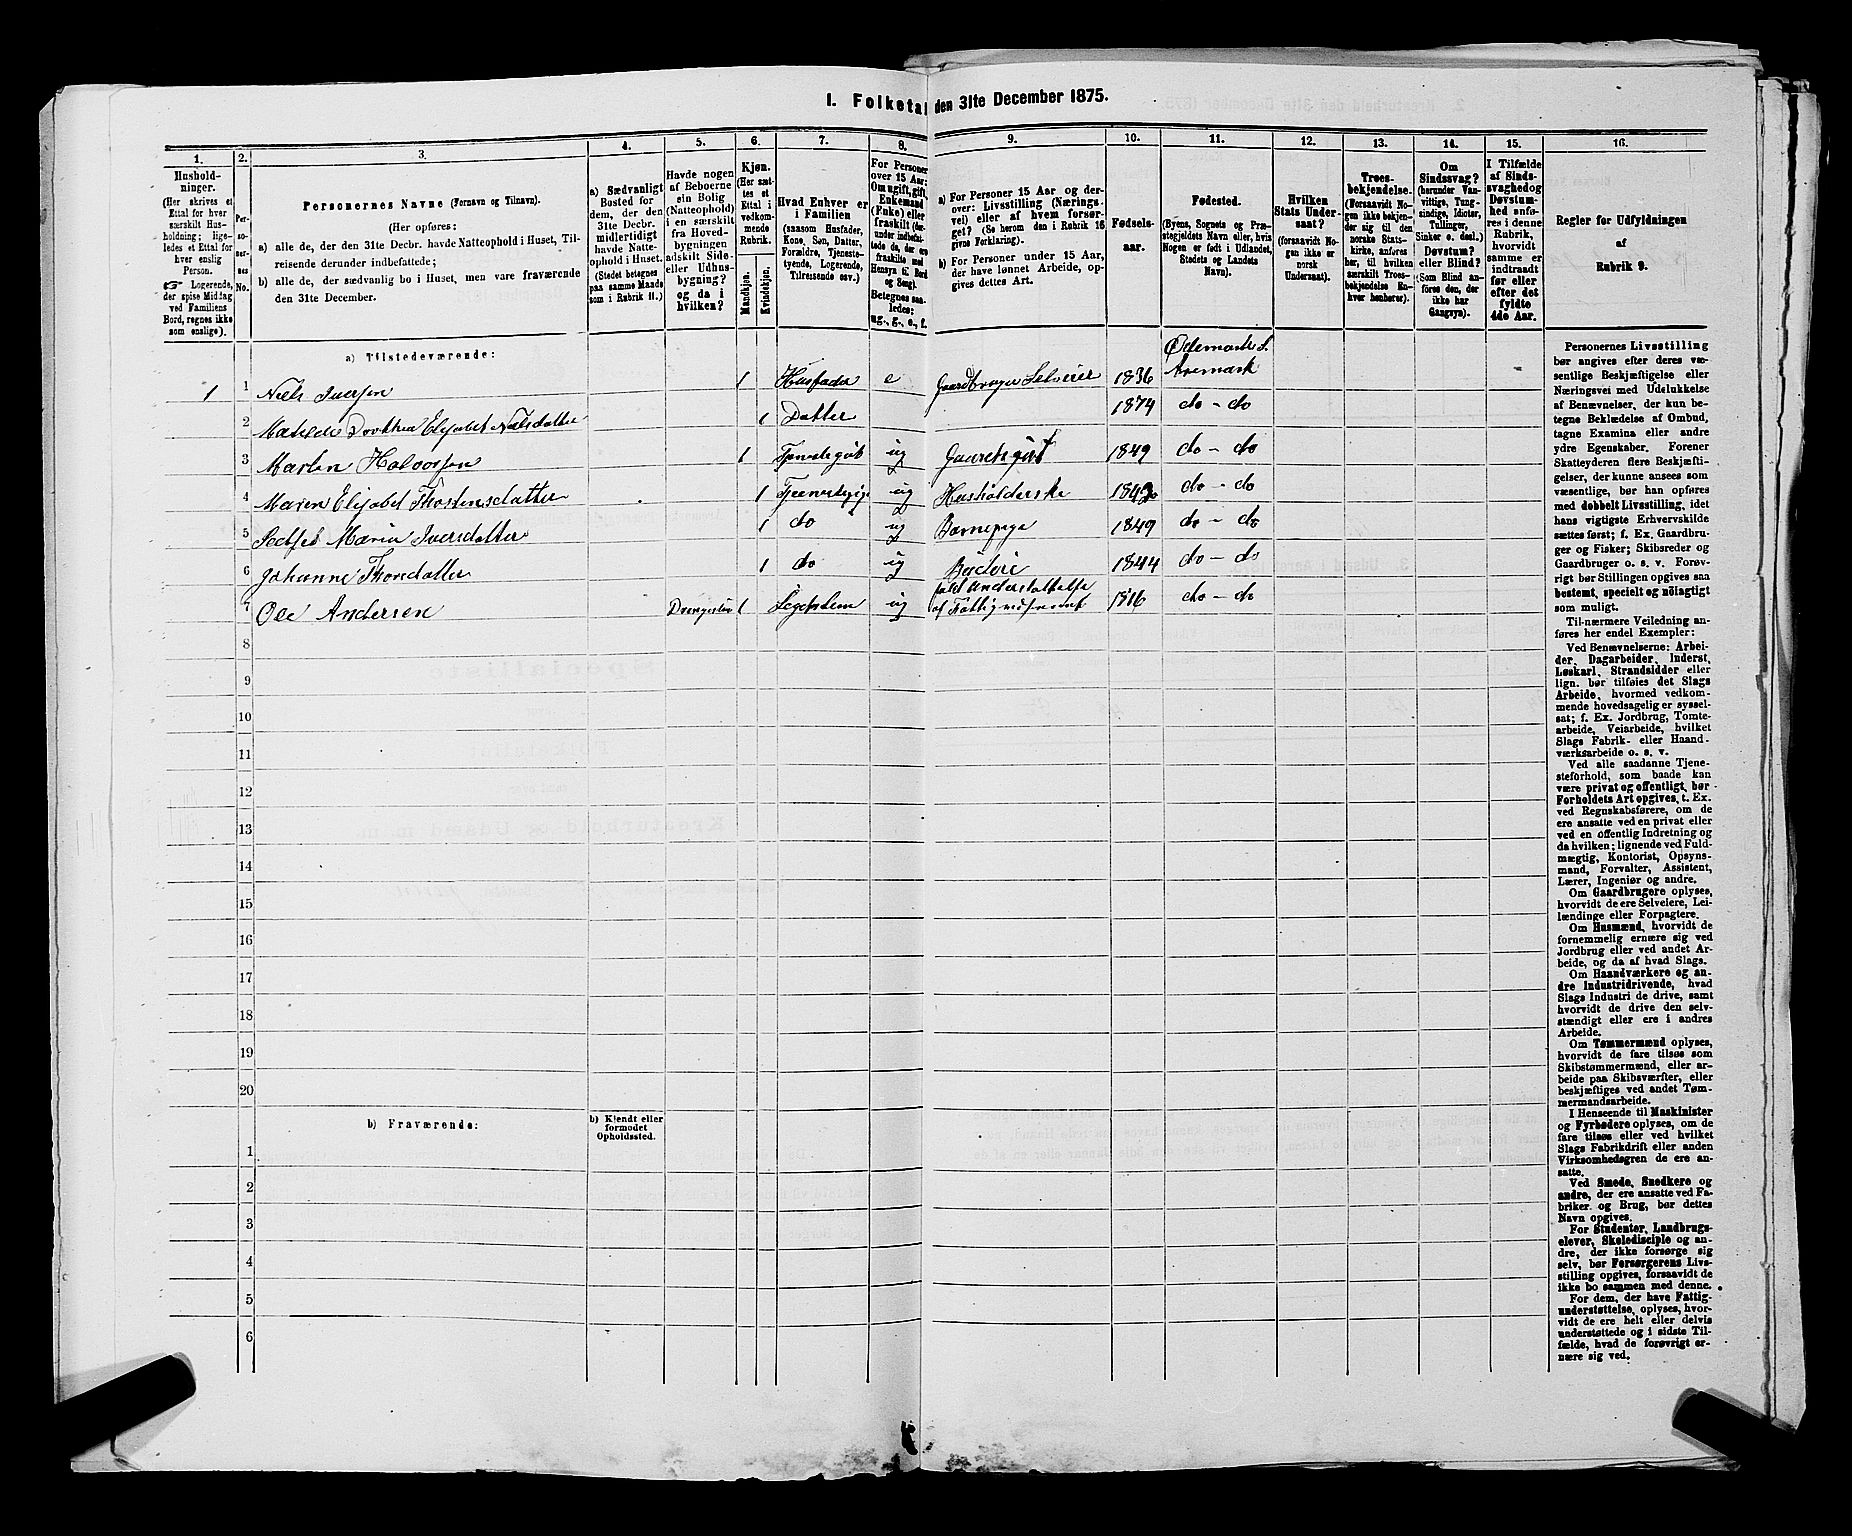 1. Folketæ den 31te December 1875.
1.
Hushold-
ninger.
(Her skrives et
Ettal for hver
særskilt Hus-
holdning; lige-
ledes et Ettal for
hver enslig
Person.
Logerende,
der spise Middag
ved Familiens
Bord, regnes ikke
som enslige).
2.
Per-
so-
ner-
nes
No.
3.
Personernes Navne (Fornavn og Tilnavn).
(Her opføres:
a) alle de, der den 31te Decbr. havde Natteophold i Huset, Til-
reisende derunder indbefattede;
b) alle de, der sædvanlig bo i Huset, men vare fraværende
den 31te December.
4.
a) Sædvanligt
Bosted for
dem, der den
31te Decbr.
midlertidigt
havde Natte-
ophold i Huset.
(Stedet betegnes
paa samme Maade
som i Rubrik 11.)
5.
Havde nogen
af Beboerne
sin Bolig
(Natteophold)
i en særskilt
fra Hoved-
bygningen
adskilt Side-
eller Udhus-
bygning?
og da i
hvilken?
6.
Kjøn.
(Her sæt-
tes et
Ettal i
vedkom-
mende
Rubrik.
Mandkjøn.
Kvindekjøn.
7.
Hvad Enhver er
i Familien
(saasom Husfader,
Kone, Søn, Datter,
Forældre, Tjeneste-
tyende, Logerende,
Tilreisende osv.)
8.
For Personer
over 15 Aar:
Om ugift, gift,
Enkemand
(Enke) eller
fraskilt (der-
under indbefat-
tede de, der ere
fraskilte med
Hensyn til Bord
og Seng).
Betegnes saa-
ledes:
ug., g., e., f.
9.
a) For Personer 15 Aar og der-
over: Livsstilling (Nærings-
vei) eller af hvem forsør-
get? (Se herom den i Rubrik 16
givne Forklaring).
b) For Personer under 15 Aar,
der have lønnet Arbeide, op-
gives dettes Art.
10.
Fødsels-
aar.
11.
Fødested.
(Byens, Sognets og Præ-
stegjeldets Navn eller, hvis
Nogen er født i Udlandet,
Stedets og Landets
Navn).
12.
Hvilken
Stats Under-
saat?
(forsaavidt No-
gen ikke er
norsk
Undersaat).
13.
Troes-
bekjendelse.
(Forsaavidt No-
gen ikke bekjen-
der sig til den
norske Stats-
kirke, anføres
her, til hvilken
særskilt Troes-
bekjendelse En-
hver henhører).
14.
Om
Sindssvag?
(herunder Van-
vittige, Tung-
sindige, Idioter,
Tullinger,
Sinker o. desl.)
Døvstum?
eller Blind?
(Som Blind an-
føres den, der
ikke har
Gangsyn).
15.
I Tilfælde
af Sinds-
svaghed og
Døvstum-
hed anfø-
res i denne
Rubrik,
hvorvidt
samme er
indtraadt
før eller
efter det
fyldte
4de Aar.
16.
Regler for Udfyldningen
af
Rubrik 9.
a) Tilstedeværende:
1 1 Niels Iversen 1 Husfader e Gaardbruger Selveier 1836 Ødemark S. Aremark
2 Matilde Dorthea Elisabet Nielsdatter 1 Datter 1874 do – do
3 Martin Halvorsen 1 Tjenestegut ug Gaardsgut 1849 do – do
4 Maren Elisabet Thostensdatter 1 Tjenestepige ug Husholderske do – do
5 Maria Iversdatter 1 do ug Barnepige 1849 do – do
6 Johanne Thorsdatter 1 do ug Budeie 1844 do – do
7 Ole Andersen Drengestue 1 Legdslem ug fuld Understøttelse
af Fattigvæsenet 1816 do – do
8
9
10
11
12
13
14
15
16
17
18
19
20
b) Fraværende:
b) Kjendt eller
formodet
Opholdssted.
1
2
3
4
5
6
Personernes Livsstilling
bør angives efter deres væ-
sentlige Beskjæftigelse eller
Næringsvei med Udelukkelse
af Benævnelser, der kun be-
tegne Beklædelse af Ombud,
tagne Examina eller andre
ydre Egenskaber. Forener
Skatteyderen flere Beskjæfti-
gelser, der kunne ansees som
væsentlige, bør han opføres
med dobbelt Livsstilling, idet
hans vigtigste Erhvervskilde
sættes først; f. Ex. Gaardbru-
ger og Fisker; Skibsreder og
Gaardbruger o. s. v. Forøv-
rigt bør Stillingen opgives saa
bestemt, specielt og nøiagtigt
som muligt.
Til nærmere Veiledning an-
føres her endel Exempler:
Ved Benævnelserne: Arbei-
der, Dagarbeider, Inderst,
Løskarl, Strandsidder eller
lign. bør tilføies det Slags
Arbeide, hvormed vedkom-
mende hovedsagelig er syssel-
sat; f. Ex. Jordbrug, Tomte-
arbeide, Veiarbeide, hvilket
Slags Fabrik- eller Haand-
værksarbeide o. s. v.
Ved alle saadanne Tjene-
steforhold, som baade kan
være privat og offentligt, bør
Forholdets Art opgives, t. Ex.
ved Regnskabsførere, om de
ere ansatte ved en privat eller
ved en offentlig Indretning og
da hvilken; lignende ved Fuld-
mægtig, Kontorist, Opsyns-
mand, Forvalter, Assistent,
Lærer, Ingeniør og andre.
Om Gaardbrugere oplyses,
hvorvidt de ere Selveiere, Lei-
lændinge eller Forpagtere.
Om Husmænd, hvorvidt de
fornemmelig ernære sig ved
Jordbrug eller ved andet Ar-
beide, og da af hvad Slags.
Om Haandværkere og an-
dre Industridrivende, hvad
Slags Industri de drive, samt
hvorvidt de drive den selv-
stændigt eller ere i andres
Arbeide.
Om Tømmermænd oplyses,
hvorvidt de fare tilsøs som
Skibstømmermænd, eller ar-
beide paa Skibsværfter, eller
beskjæftiges ved andet Tøm-
mermandsarbeide.
I Henseende til Maskinister
og Fyrbødere oplyses, om de
fare tilsøs eller ved hvilket
Slags Fabrikdrift eller anden
Virksomhedsgren de ere an-
satte.
Ved Smede, Snedkere og
andre, der ere ansatte ved Fa-
briker og Brug, bør dettes
Navn opgives.
For Studenter, Landbrugs-
elever, Skoledisciple og an-
dre, der ikke forsørge sig
selv, bør Forsørgerens Livs-
stilling opgives, forsaavidt de
ikke bo sammen med denne.
For dem, der have Fattig-
understøttelse, oplyses, hvor-
vidt de ere helt eller delvis
understøttede og i sidste Til-
fælde, hvad de forøvrigt er-
nære sig ved.